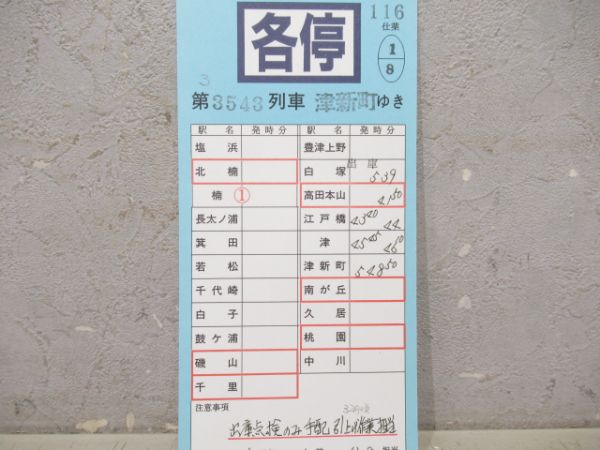 116
仕業
各停
1
8
3
第3543列車 津新町ゆき
駅名 発時分 駅名 発時分
塩浜 豊津上野
北楠 白塚 出庫 539
楠 ① 高田本山 41 50
長太ノ浦 江戸橋 43 40 44
箕田 津 45 45 46 0
若松 津新町 548 50
千代崎 南が丘
白子 久居
鼓ケ浦 桃園
磯山 中川
千里
注意事項
出庫点検のみ手配 引上作業担当